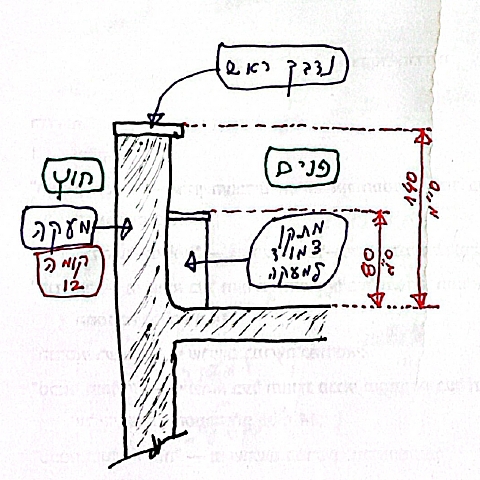 נדבך ראש
חוץ
פנים
מעקה
קומה
12
מתקן
צמוד
למעקה
80
ס"מ
140
ס"מ